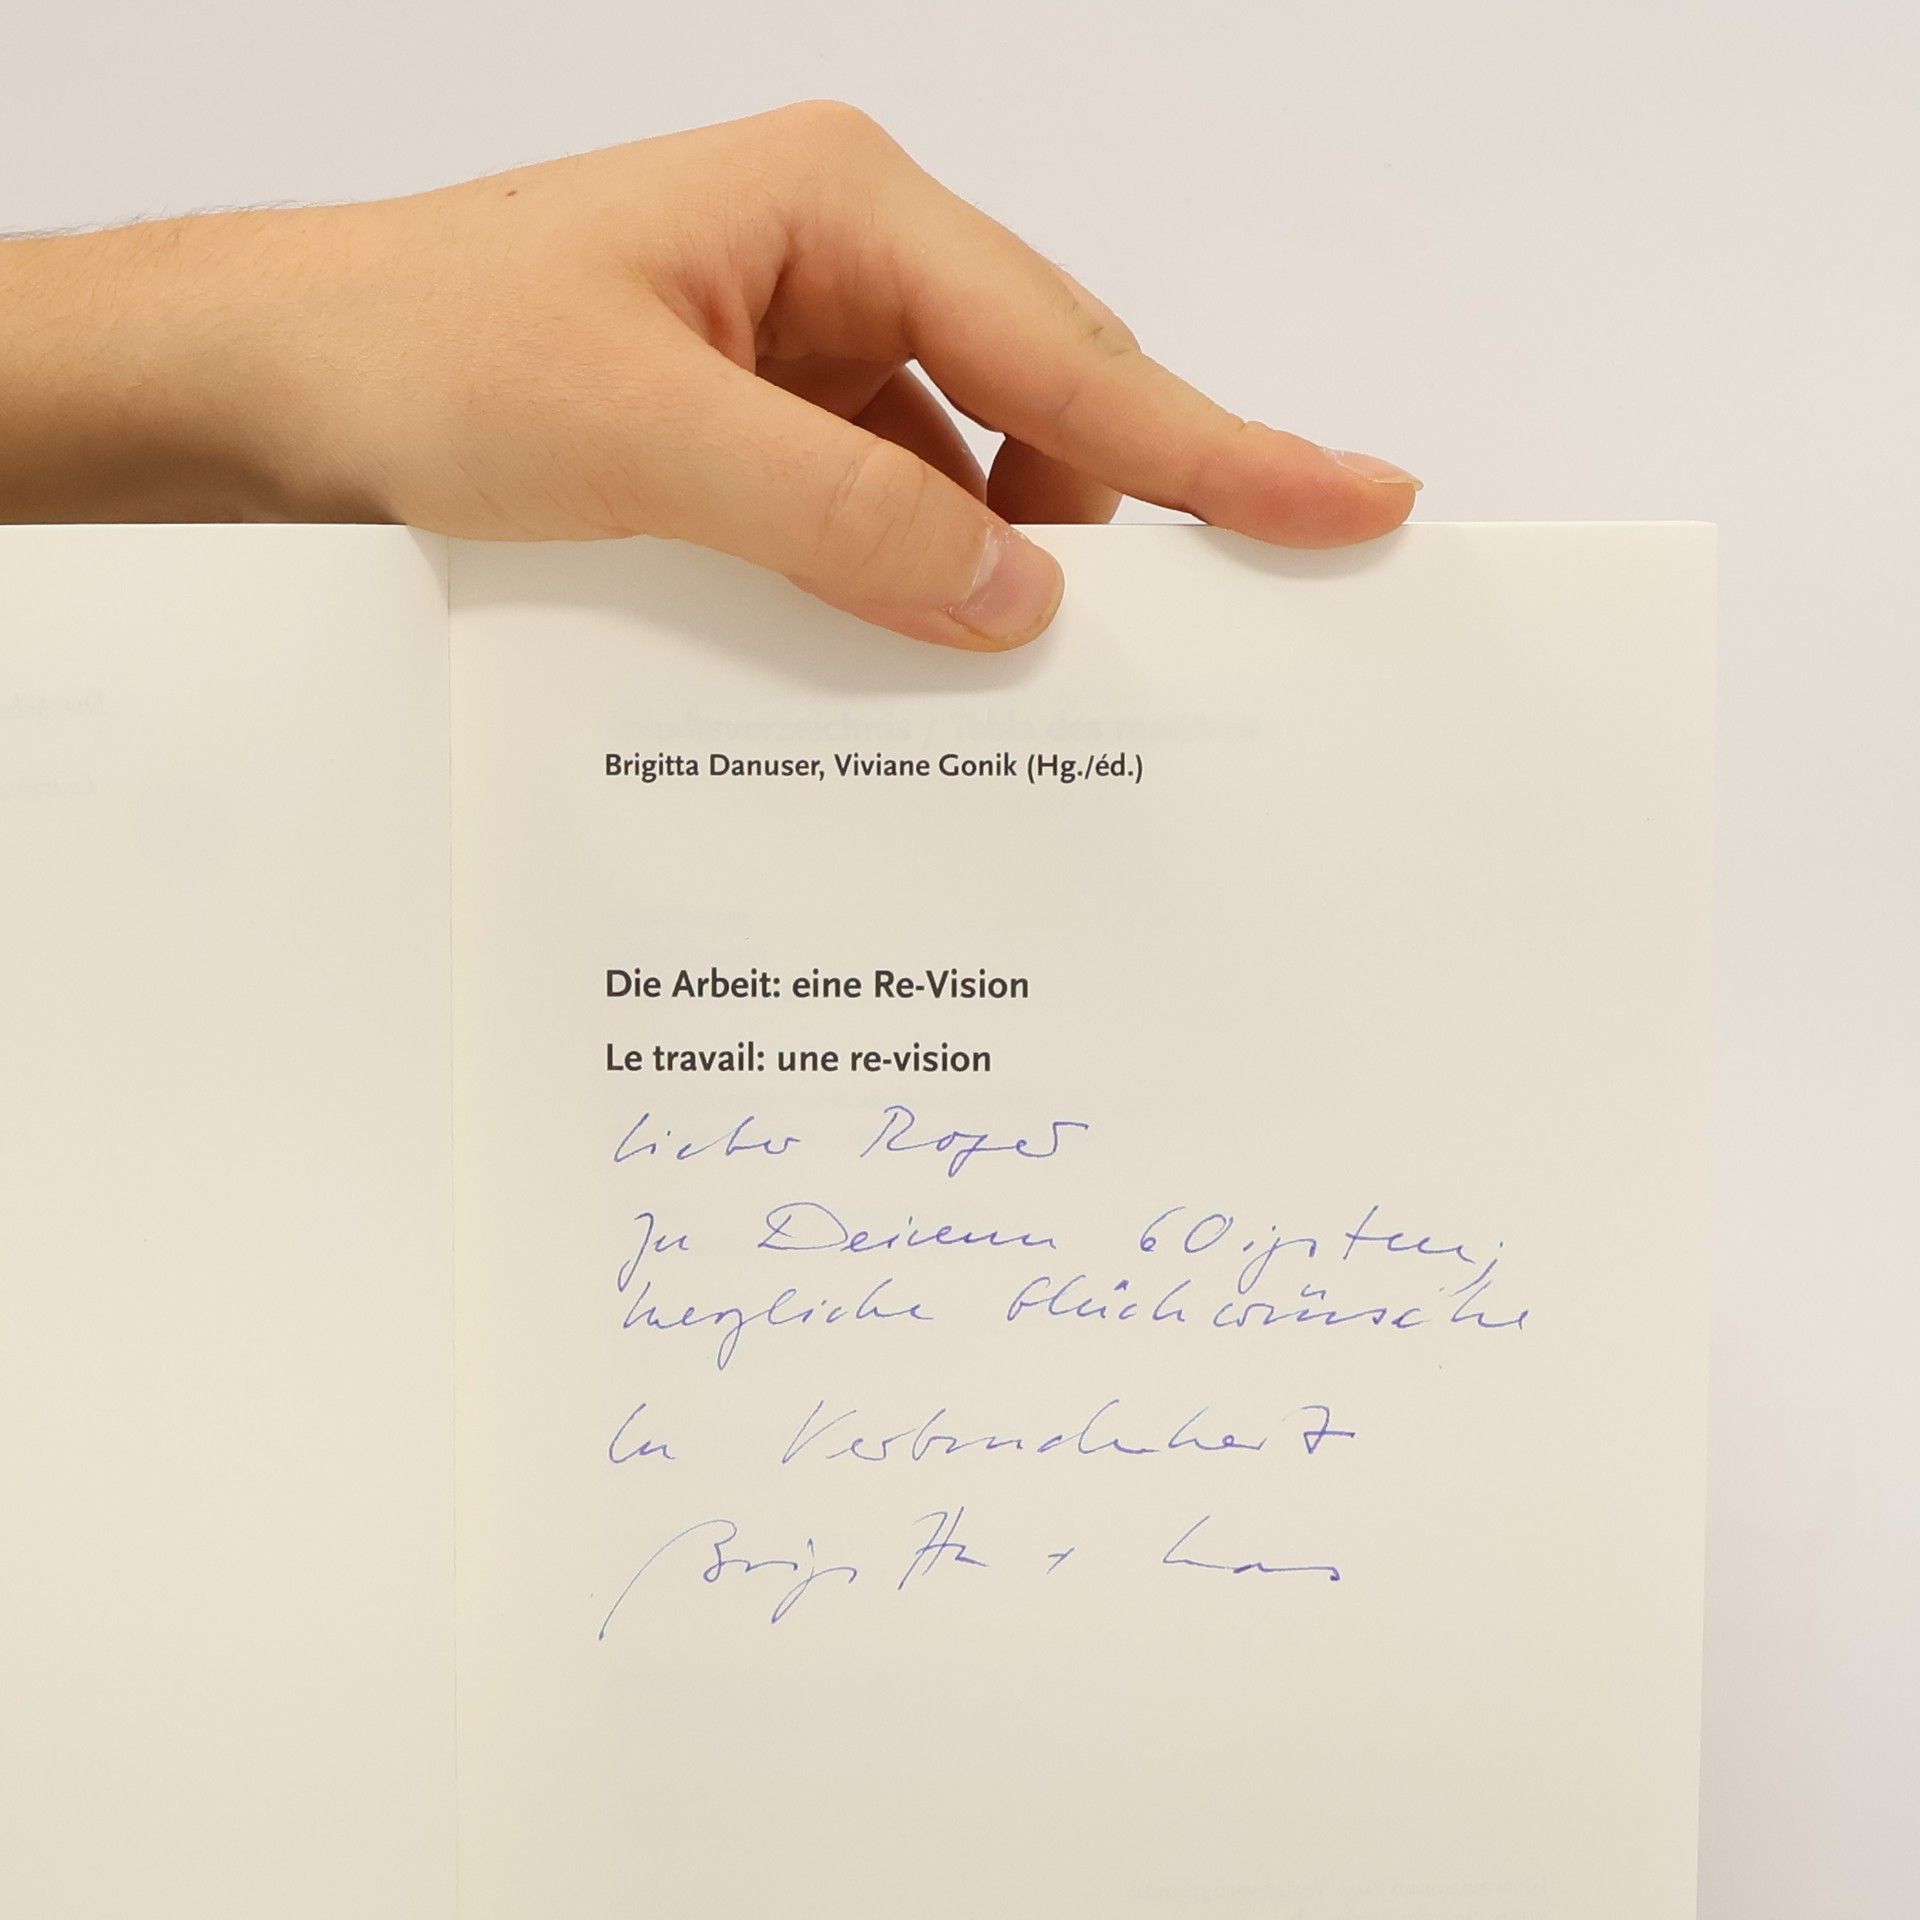 Brigitta Danuser, Viviane Gonik (Hg./éd.)
Die Arbeit: eine Re-Vision
Le travail: une re-vision
Lieber Roger
Zu Deinem 60igsten,
herzliche Glückwünsche
In Verbundenheit
Brigitta +